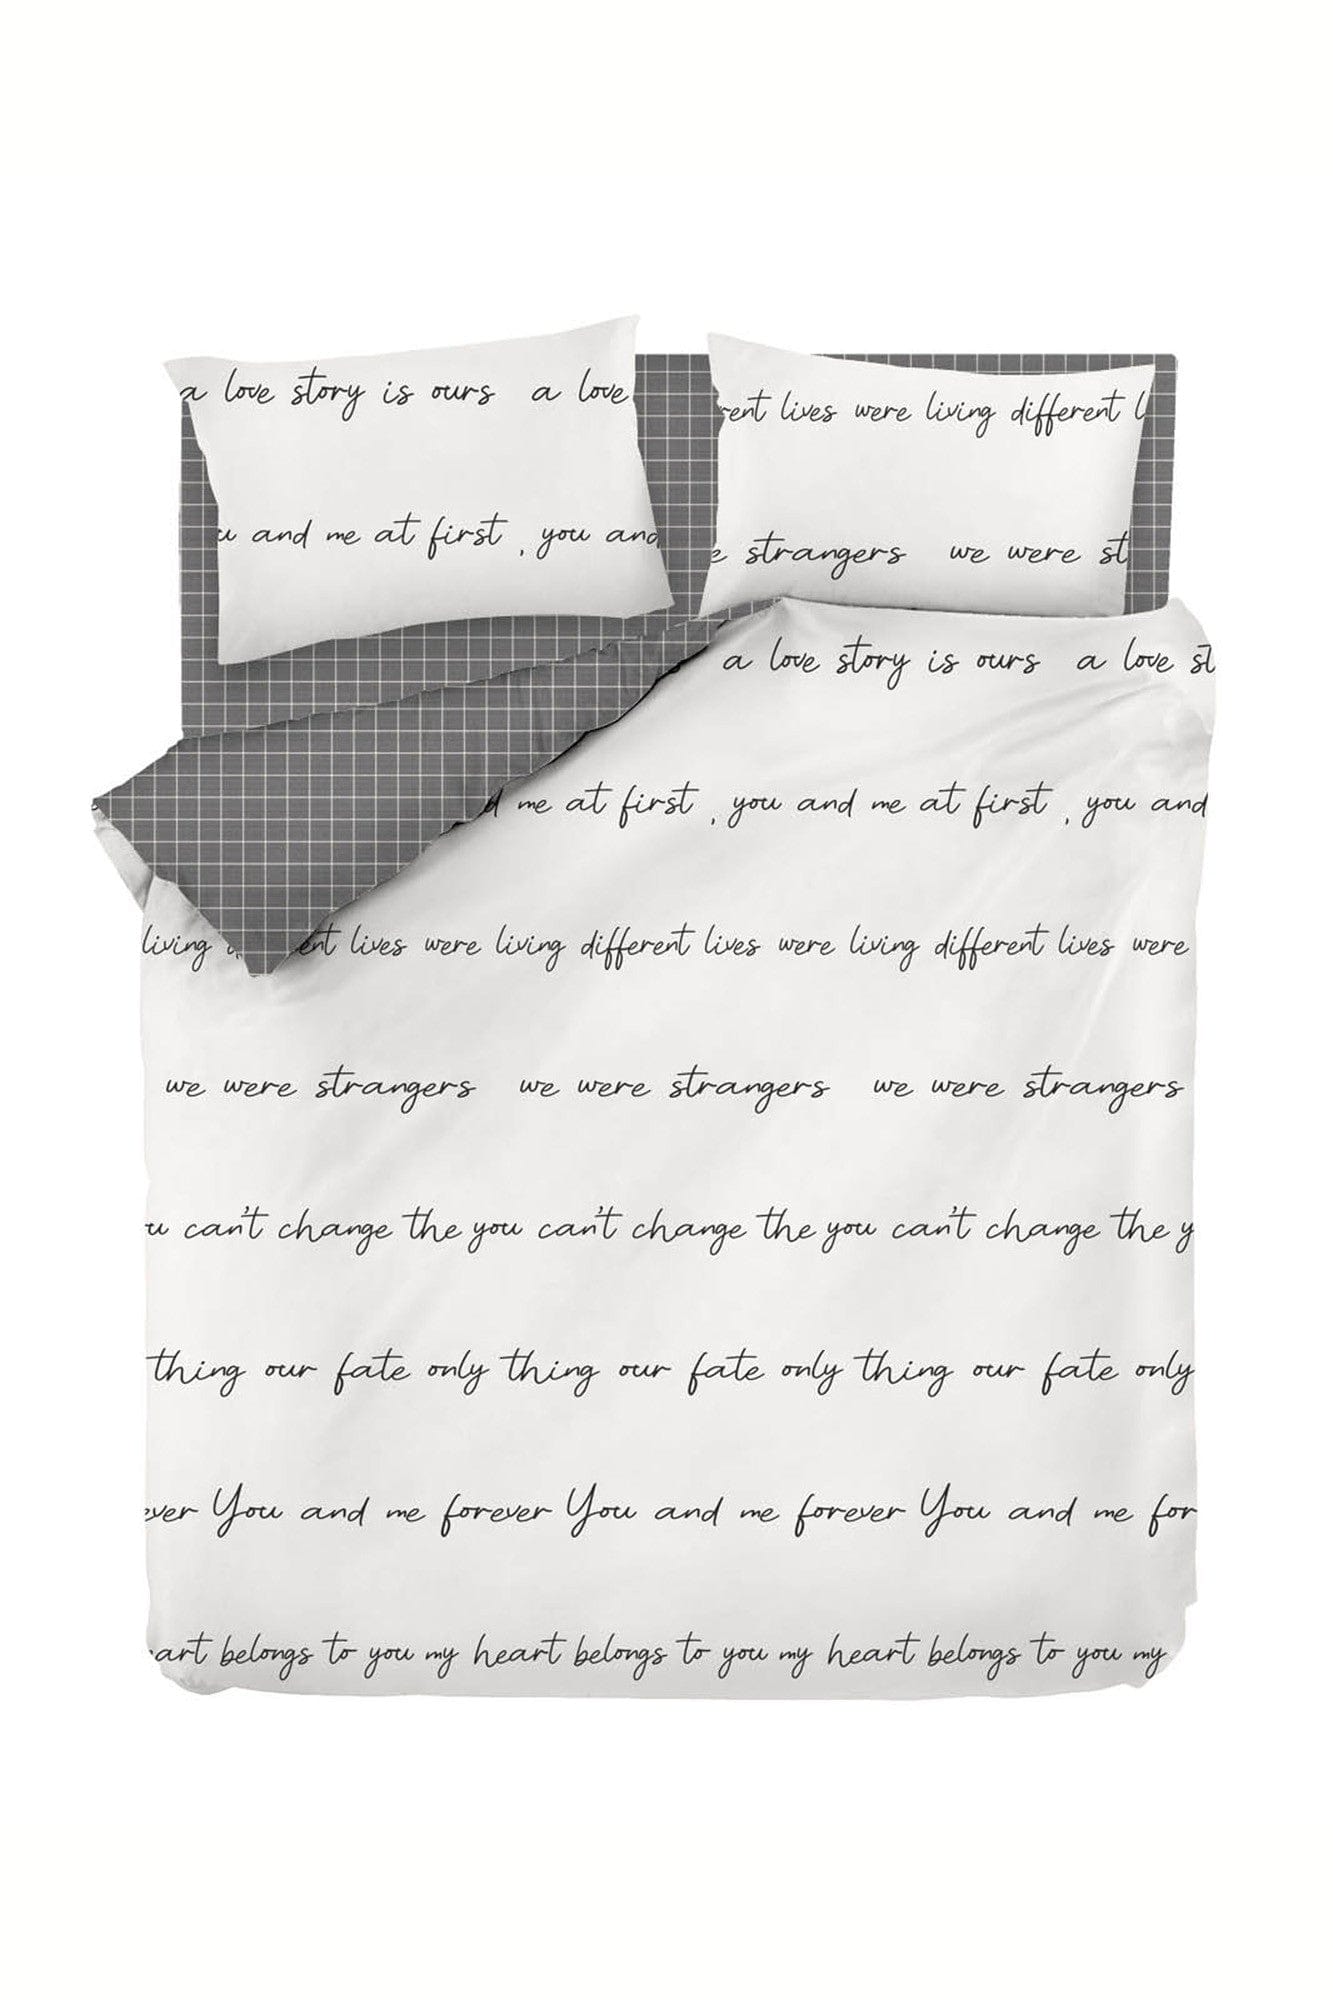 a love story is ours a love
and me at first , you and
lives were living different
strangers we were
a love story is ours a love
me at first , you and me at first , you and
living lives were living different lives were living different lives were
we were strangers we were strangers we were strangers
can't change the you can't change the you can't change the
thing our fate only thing our fate only thing our fate only
You and me forever You and me forever You and me
belongs to you my heart belongs to you my heart belongs to you my